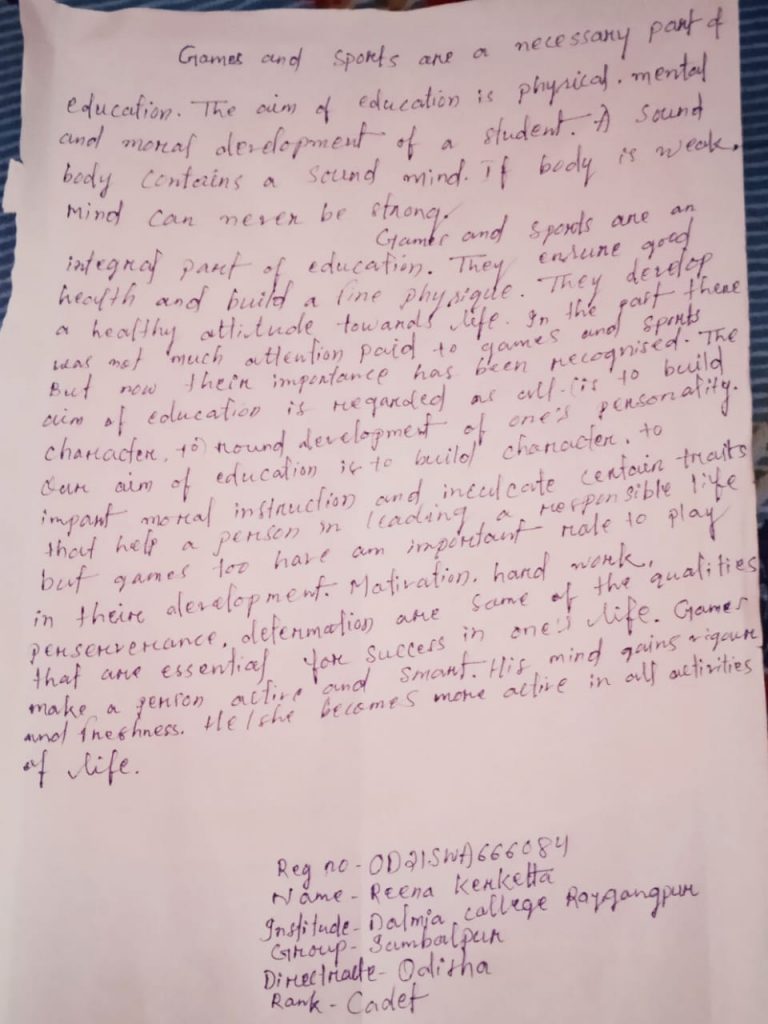 Games and sports are a necessary part of
education. The aim of education is physical. mental
and moral development of a student. A sound
body contains a sound mind. If body is weak.
Mind can never be strong.
Games and sports are an
integral part of education. They ensure good
health and build a fine physique. They develop
a healthy attitude towards life. In the past there
was not much attention paid to games and sports
But now their importance has been recognised. The
aim of education is regarded as all is to build
character, to round development of one's personality.
Our aim of education is to build character. to
impart moral instruction and inculcate certain traits
that help a person in leading a responsible life
but games too have am important role to play
in their development. Mativation. hard work.
perserverance, defermation are some of the qualities
that are essential for success in one's life. Games
make a person active and smart. His mind gains vigour
and freshness. He/she becomes more active in all activities
of life.
Reg no - OD21SWA666084
Name - Reena Kerketta
Institude - Dalmia college Raygangpur
Group - Sambalpur
Directrate - Oditha
Rank - Cadet